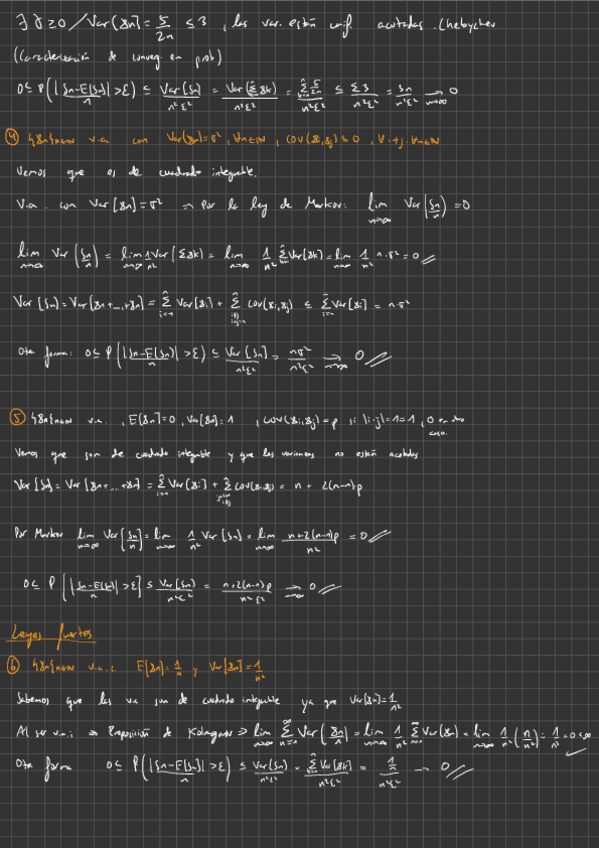 ∃ γ ≥ 0 / Var(ξn) = 5/2n ≤ 3 , las var. están unif. acotadas. Chebychev
(Caracterización de converg. en prob)
0 ≤ P(|Sn-E(Sn)/n| > ε) ≤ Var(Sn)/n²ε² = Var(Σξk)/n²ε² = Σ 5/2n / n²ε² ≤ Σ3/n²ε² = 3n/n²ε² → 0 n→∞
④ {ξn}n∈N v.a con Var(ξn)=σ², ∀n∈N , COV(ξi,ξj) ≤ 0 , ∀ i≠j ∀n∈N
Vemos que es de cuadrado integrable.
V.a. con Var[ξn]=σ² ⇒ Por la ley de Markov: lim n→∞ Var(Sn/n) = 0
lim n→∞ Var(Sn/n) = lim n→∞ 1/n² Var(Σξk) = lim n→∞ 1/n² Σ Var(ξk) = lim n→∞ 1/n² n·σ² = 0
Var[Sn] = Var[ξ1+...+ξn] = Σ Var[ξi] + Σ COV(ξi,ξj) ≤ Σ Var[ξi] = nσ²
Otra forma: 0 ≤ P(|Sn-E(Sn)/n| > ε) ≤ Var[Sn]/n²ε² = nσ²/n²ε² → 0 n→∞
⑤ {ξn}n∈N v.a. , E[ξn]=0 , Var[ξn]=1 , COV(ξi,ξj)=ρ si |i-j|=1 , 0 en otro caso.
Vemos que son de cuadrado integrable y que las varianzas no están acotadas
Var[Sn] = Var[ξ1+...+ξn] = Σ Var[ξi] + Σ COV(ξi,ξj) = n + 2(n-1)ρ
Por Markov lim n→∞ Var[Sn/n] = lim n→∞ 1/n² Var[Sn] = lim n→∞ n+2(n-1)ρ/n² = 0
0 ≤ P[|Sn-E(Sn)/n| > ε] ≤ Var(Sn)/n²ε² = n+2(n-1)ρ/n²ε² → 0 n→∞
Leyes fuertes
⑥ {ξn}n∈N v.a.i. E[ξn]=1/n y Var[ξn]=1/n²
Sabemos que las va son de cuadrado integrable ya que Var[ξn]=1/n²
Al ser v.a.i ⇒ Proposición de Kolmogorov ⇒ lim n→∞ Σ Var(ξn/n) = lim n→∞ 1/n² Σ Var(ξn) = lim n→∞ 1/n² (n/n²) = 1/n³ = 0 < ∞
Otra forma 0 ≤ P(|Sn-E[Sn]/n| > ε) ≤ Var(Sn)/n²ε² = Σ Var(ξk)/n²ε² = 1/n / n²ε² → 0